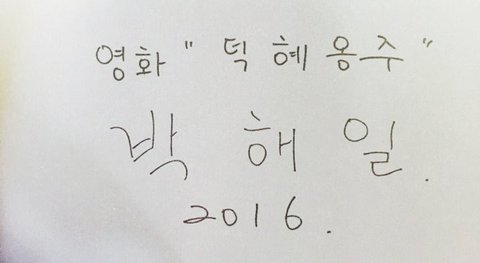 영화 " 덕 혜 옹 주 "
박 해 일.
2016.